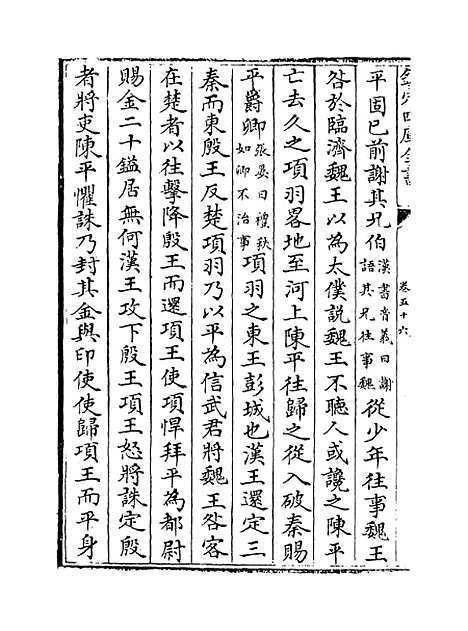 欽定四庫全書
卷五十六
平固已前謝其兄伯漢書音義曰謝語其兄往事魏從少年往事魏王
咎於臨濟魏王以為太僕說魏王不聽人或讒之陳平
亡去久之項羽畧地至河上陳平往歸之從入破秦賜
平爵卿張晏曰禮秩如卿不治事項羽之東王彭城也漢王還定三
秦而東殷王反楚項羽乃以平為信武君將魏王咎客
在楚者以往擊降殷王而還項王使項悍拜平為都尉
賜金二十鎰居無何漢王攻下殷王項王怒將誅定殷
者將吏陳平懼誅乃封其金與印使使歸項王而平身